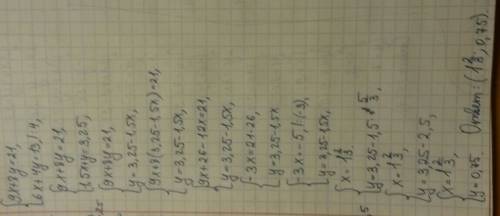 9x+8y=21,
6x+4y=13 | :4,
9x+8y=21,
1,5x+y=3,25,
9x+8y=21,
y=3,25-1,5x,
9x+8(3,25-1,5x)=21,
y=3,25-1,5x,
9x+26-12x=21,
y=3,25-1,5x,
-3x=21-26,
y=3,25-1,5x
-3x=-5,|:(-3),
y=3,25-1,5x,
x=1 2/3,
y=3,25-1,5·5/3,
x=1 2/3,
y=3,25-2,5,
x=1 2/3,
y=0,75 Ответ: (1 2/3; 0,75).